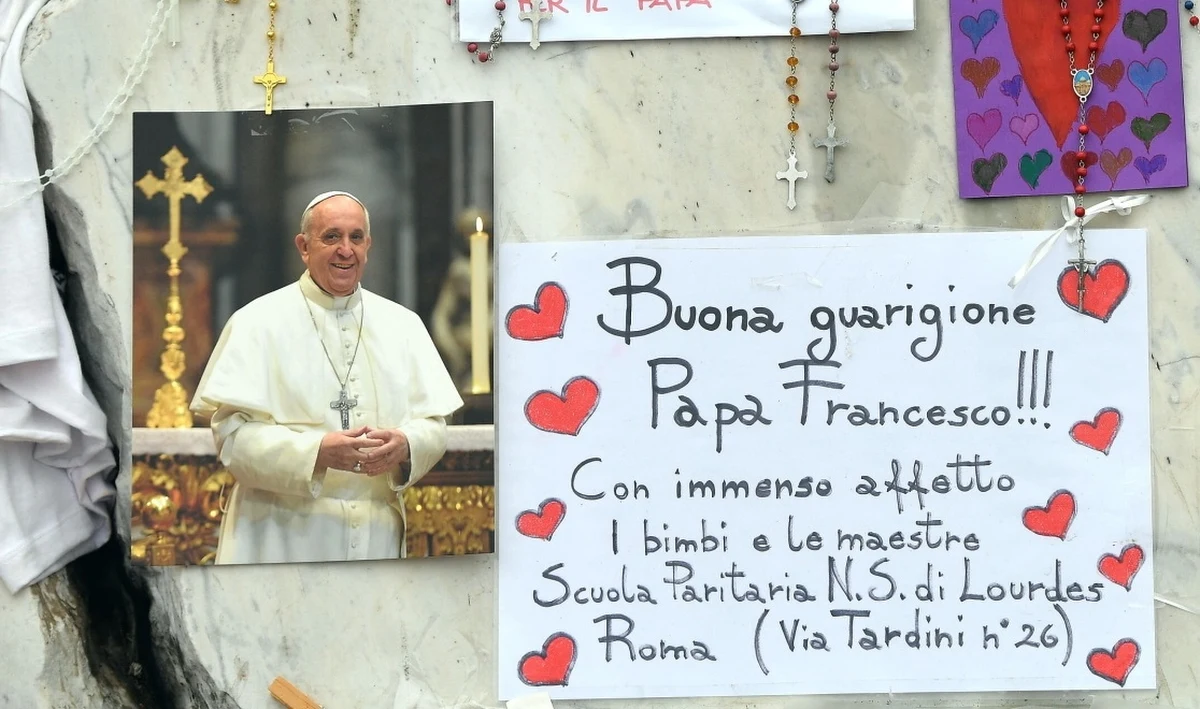 PER IL PAPA
Buona guarigione
Papa Francesco!!!
Con immenso affetto
I bimbi e le maestre
Scuola Paritaria N.S. di Lourdes
Roma (Via Tardini n° 26)